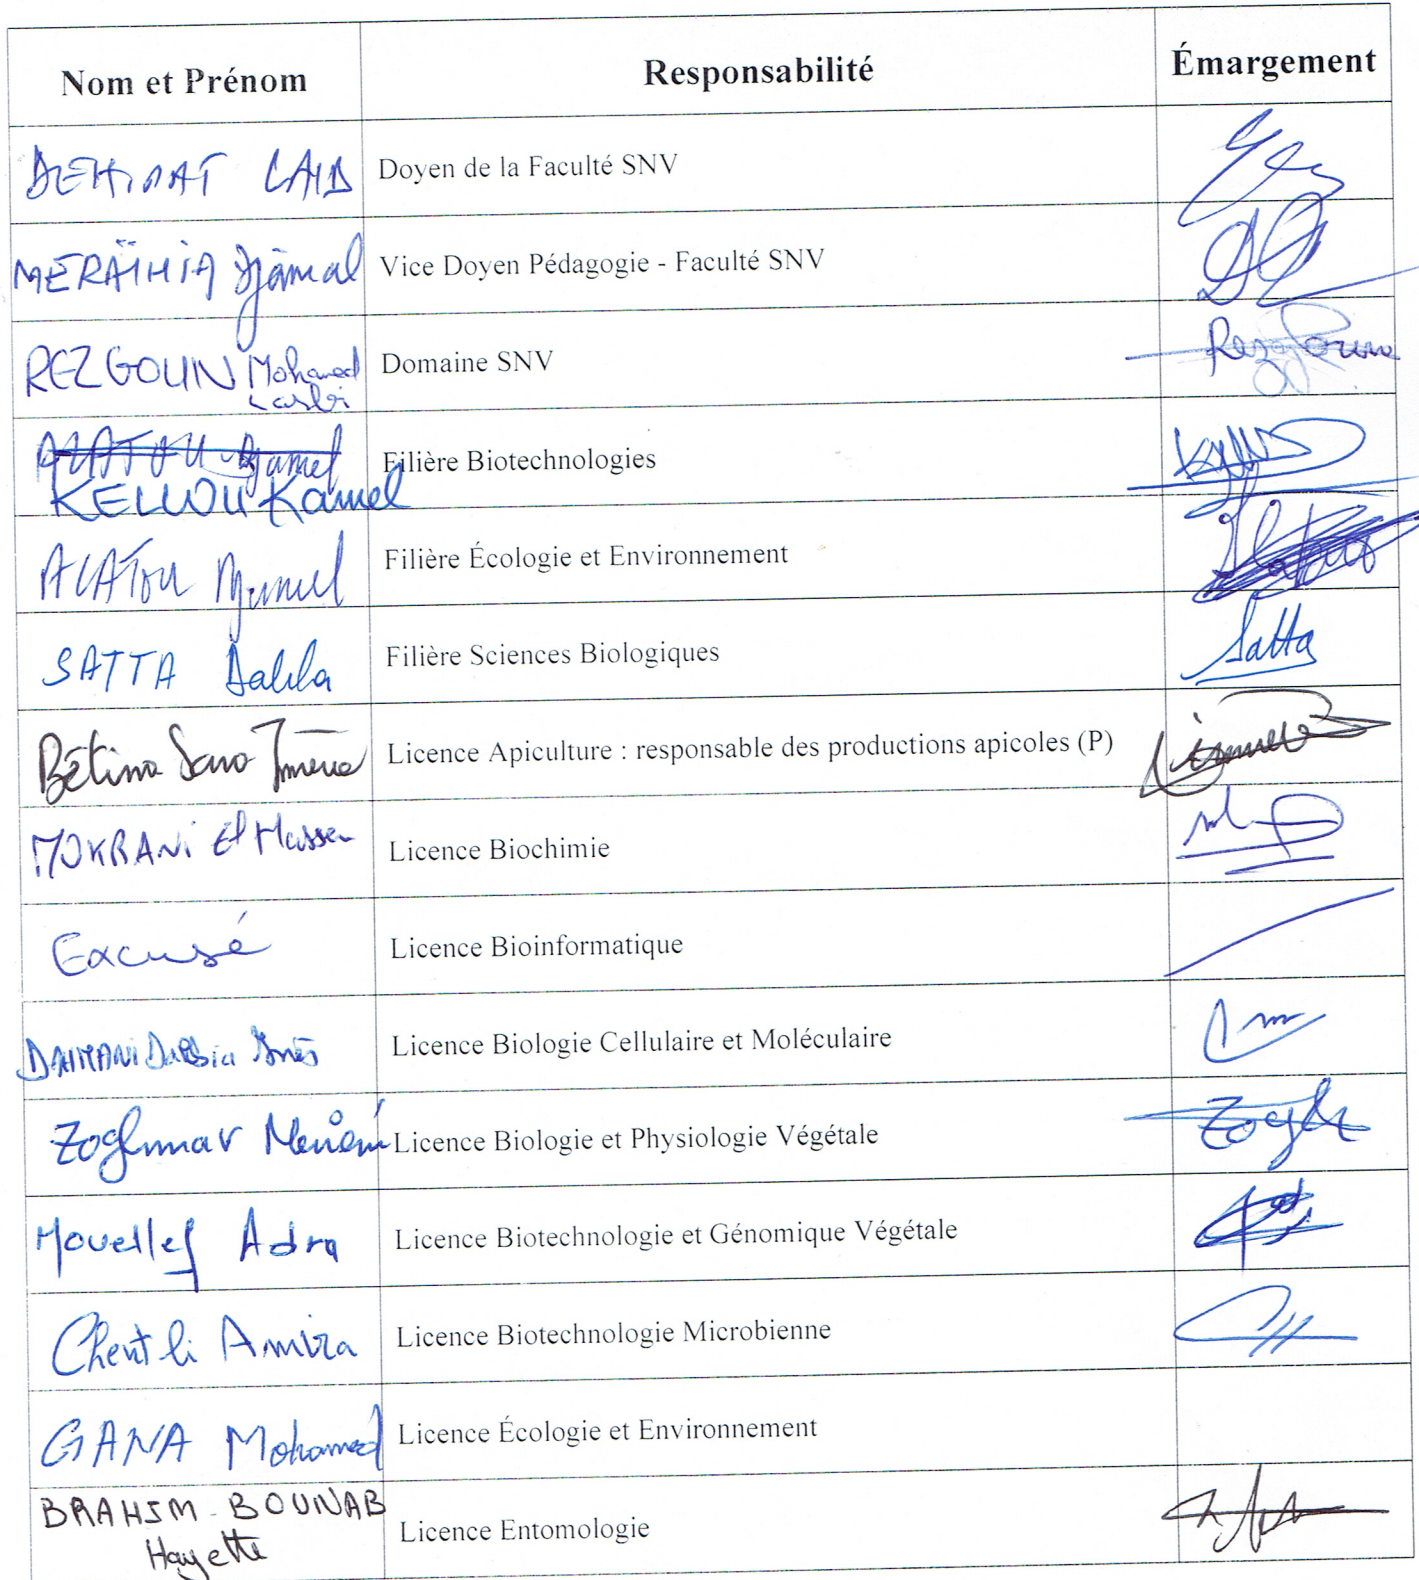 Nom et Prénom Responsabilité Émargement
DEHIMAT LAID Doyen de la Faculté SNV
MERAÏHIA Djâmal Vice Doyen Pédagogie - Faculté SNV
REZGOUN Mohamed Larbi Domaine SNV Rezgoun
ALATOU Djamel
KELLOU Kamel Filière Biotechnologies
ALATOU Djamel Filière Écologie et Environnement
SATTA Dalila Filière Sciences Biologiques Satta
Bétina Sara Imène Licence Apiculture : responsable des productions apicoles (P)
MOKRANI El Hassen Licence Biochimie
Excusé Licence Bioinformatique
DAHMANI Inès Licence Biologie Cellulaire et Moléculaire
Zoghmar Licence Biologie et Physiologie Végétale
Mouellef Adra Licence Biotechnologie et Génomique Végétale
Chentli Amira Licence Biotechnologie Microbienne
GANA Mohamed Licence Écologie et Environnement
BRAHIM-BOUNAB
Hayette Licence Entomologie